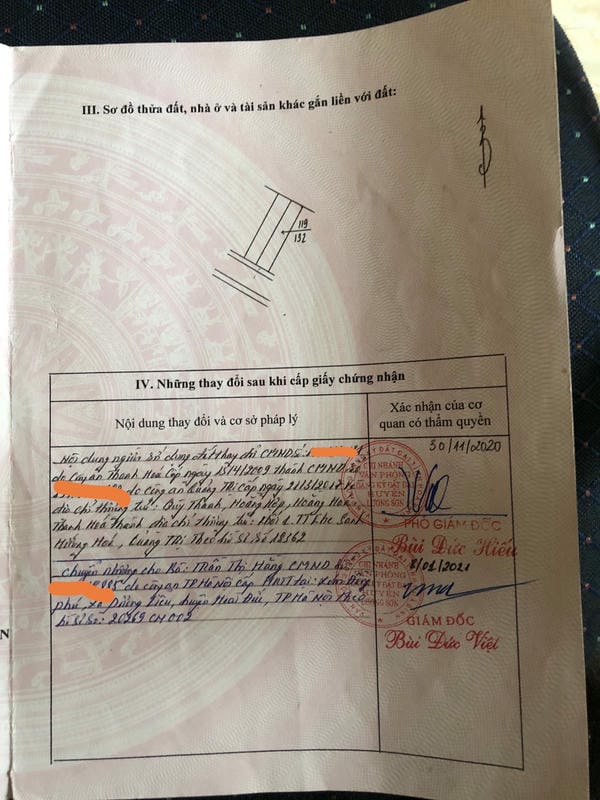 III. Sơ đồ thửa đất, nhà ở và tài sản khác gắn liền với đất:
119
132
IV. Những thay đổi sau khi cấp giấy chứng nhận
Nội dung thay đổi và cơ sở pháp lý
Xác nhận của cơ quan có thẩm quyền
Nội dung người sử dụng đất thay đổi CMND số:
do Công an Thanh Hoá cấp ngày 15/4/2009 thành CMND số
do Công an Quảng Trị cấp ngày
địa chỉ thường trú: Quý Thanh, Hoằng Hợp, Hoằng Hoá
Thanh Hoá thành địa chỉ thường trú: Khối 1, TT Khe Sanh
Hướng Hoá, Quảng Trị Theo hồ sơ số 18362
30/11/2020
CHI NHÁNH
VĂN PHÒNG
ĐĂNG KÝ ĐẤT ĐAI
HUYỆN
LƯƠNG SƠN
PHÓ GIÁM ĐỐC
Bùi Đức Hiếu
Chuyển nhượng cho Bà: Trần Thị Hằng CMND số
do công an TP Hà Nội cấp HKTT tại:
phú, xã Dương Liễu, huyện Hoài Đức, TP Hà Nội theo
hồ sơ số: 20269 CN 002
8/01/2021
CHI NHÁNH
VĂN PHÒNG
ĐĂNG KÝ ĐẤT ĐAI
HUYỆN
LƯƠNG SƠN
GIÁM ĐỐC
Bùi Đức Việt
N